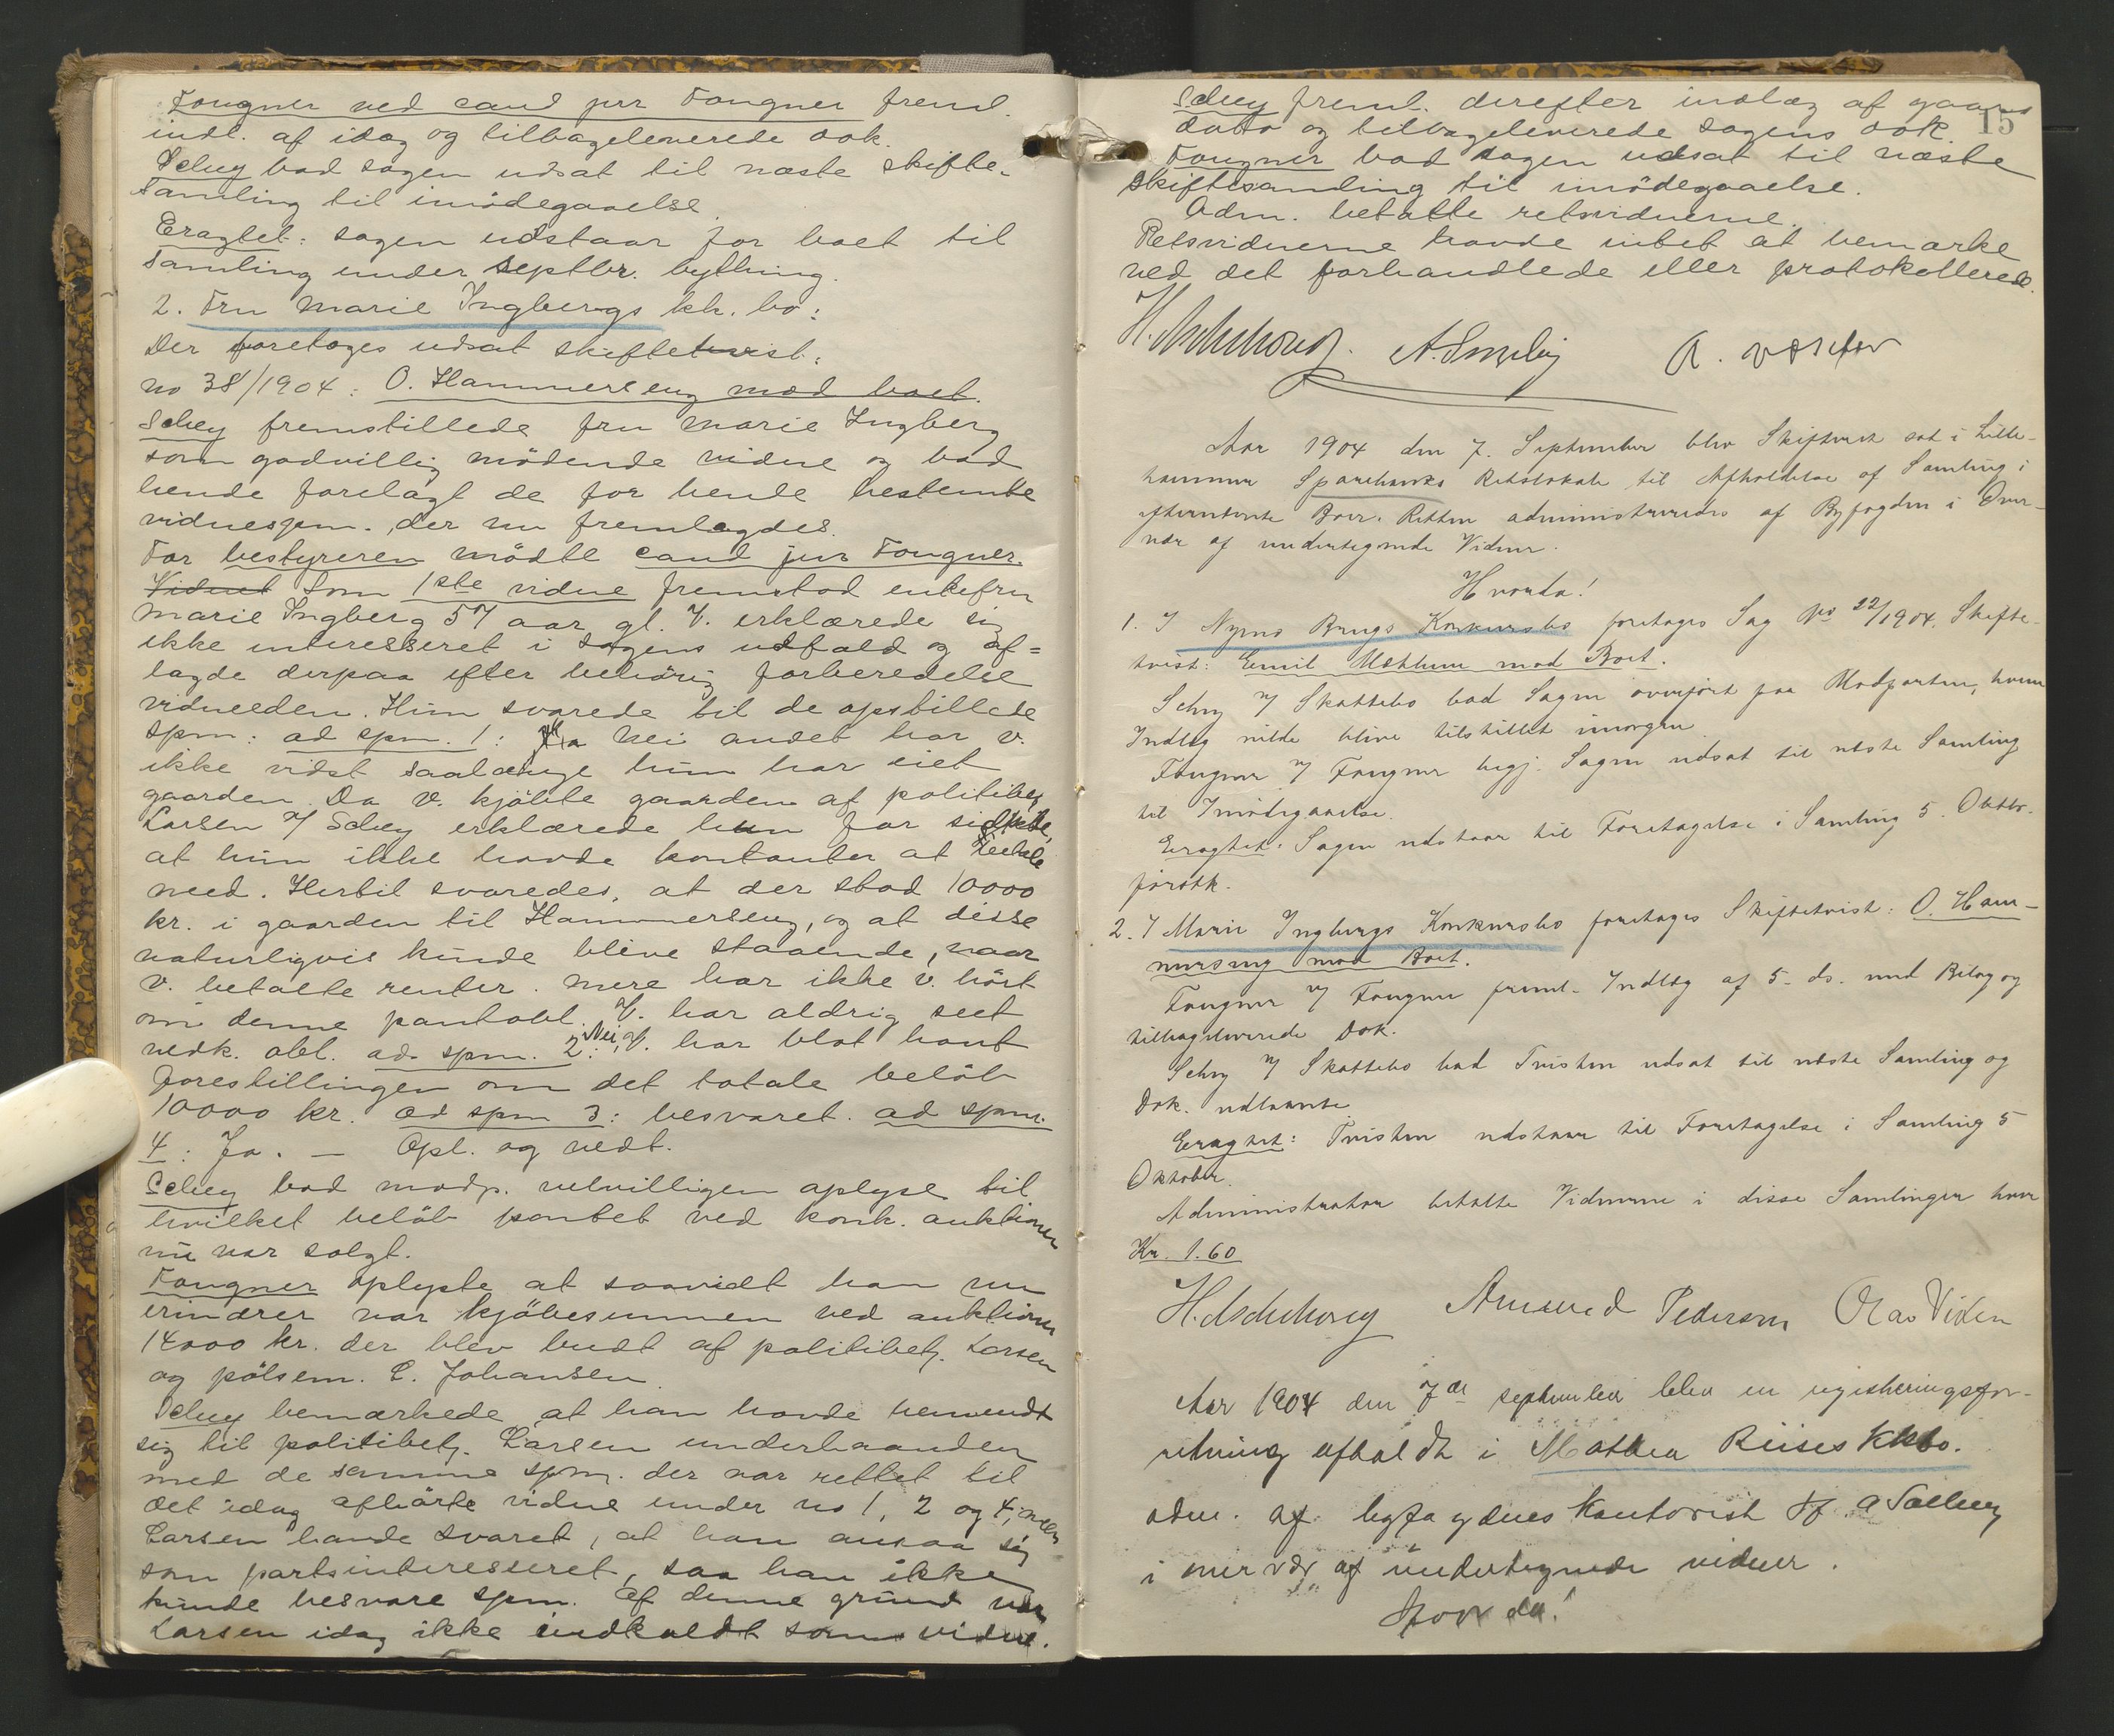 Fougner ved cand jur Fougner freml.
indl. af idag og tilbageleverede dok.
Schey bad sagen udsat til næste skifte-
samling til imødegaaelse.
Eragtet: sagen udstaar for boet til
samling under septbr. bytthing.
2. Fru Marie Ingbergs kk. bo:
Der foretoges udsat skiftetvist:
no 38/1904: O. Hammerseng mod boet.
Schey fremstillede fru Marie Ingberg
som godvillig mödende vidne og bad
hende forelagt de for hende bestemte
vidnespm. der nu fremlagdes.
For bestyreren mödte cand jur Fougner.
Vidnet Som 1ste vidne fremstod enkefru
Marie Ingberg 57 aar gl. V. erklærede sig
ikke interesseret i sagens udfald og af=
lagde derpaa efter behörig forberedelse
vidneeden. Hun svarede til de opstillede
spm: ad spm. 1: Nei andet har v.
ikke vidst saalænge hun har eiet
gaarden. Da v. kjöbte gaarden af politibetj
Larsen v/ Schey erklærede hun for sidste,
at hun ikke havde kontanter at
med. Hertil svaredes, at der stod 10000
kr. i gaarden til Hammerseng, og at disse
naturligvis kunde blive staaende, naar
v. betalte renter. Mere har ikke v. hört
om denne pantobl. V. har aldrig seet
vedk. obl. ad spm. 2: Nei, V. har blot havt
forestillingen om det totale belöb
10000 kr. ad spm 3: besvaret. ad spm.
4: Ja. — Opl. og vedt.
Schey bad modp. velvilligen oplyse til
hvilket belöb pantet ved konk. auktionen
nu var solgt.
Fougner oplyste at saavidt han nu
erindrer var kjöbesummen ved auktionen
14000 kr. der blev budt af politibetj. Larsen
og pölsem. E. Johansen.
Schey bemærkede at han havde henvendt
sig til politibetj. Larsen underhaanden
med de samme spm. der var rettet til
det idag afhörte vidne under no 1, 2 og 4, men
Larsen havde svaret, at han ansaa sig
som partsinteresseret, saa han ikke
kunde besvare spm. Af denne grund var
Larsen idag ikke indkaldt som vidne.
15
Schey freml. derefter indlæg af gaars
dato og tilbageleverede sagens dok.
Fougner bad sagen udsat til næste
skiftesamling til imödegaaelse.
Adm. betalte retsvidnerne.
Retsvidnerne havde intet at bemærke
ved det forhandlede eller protokollerede.
H. Aschehoug. A. Smeby A.
Aar 1904 den 7. September blev Skifteret sat i Lille-
hammer Sparebanks Retslokale til Afholdelse af Samling i
efternævnte Boer. Retten administreredes af Byfogden i Over-
vær af undertegnede Vidner.
Hvorda!
1. I Nymo Brugs Konkursbo foretoges Sag No 22/1904. Skifte-
tvist: Emil Mæhlum mod Boet.
Schey v/ Skattebo bad Sagen overført paa Modparten, hvem
Indlæg vilde blive tilstillet imorgen.
Fougner v/ Fougner begj. Sagen udsat til næste Samling
til Imødegaaelse.
Eragtet: Sagen udstaar til Foretagelse i Samling 5. Oktbr.
førstk.
2. I Marie Ingbergs Konkursbo foretoges Skiftetvist: O. Ham-
merseng mod Boet.
Fougner v/ Fougner freml. Indlæg af 5. ds. med Bilag og
tilbageleverede Dok.
Schey v/ Skattebo bad Tvisten udsat til næste Samling og
Dok. udlaante
Eragtet: Tvisten udstaar til Foretagelse i Samling 5
Oktober.
Administrator betalte Vidnerne i disse Samlinger hver
Kr. 1.60
H. Aschehoug Amund Pedersen Olav Viken
Aar 1904 den 7de september blev en registreringsfor-
retning afholdt i Mathea Riises kkbo.
adm. af byfogdens kontorist A Solberg
i overvær af undertegnede vidner.
Hvorda!